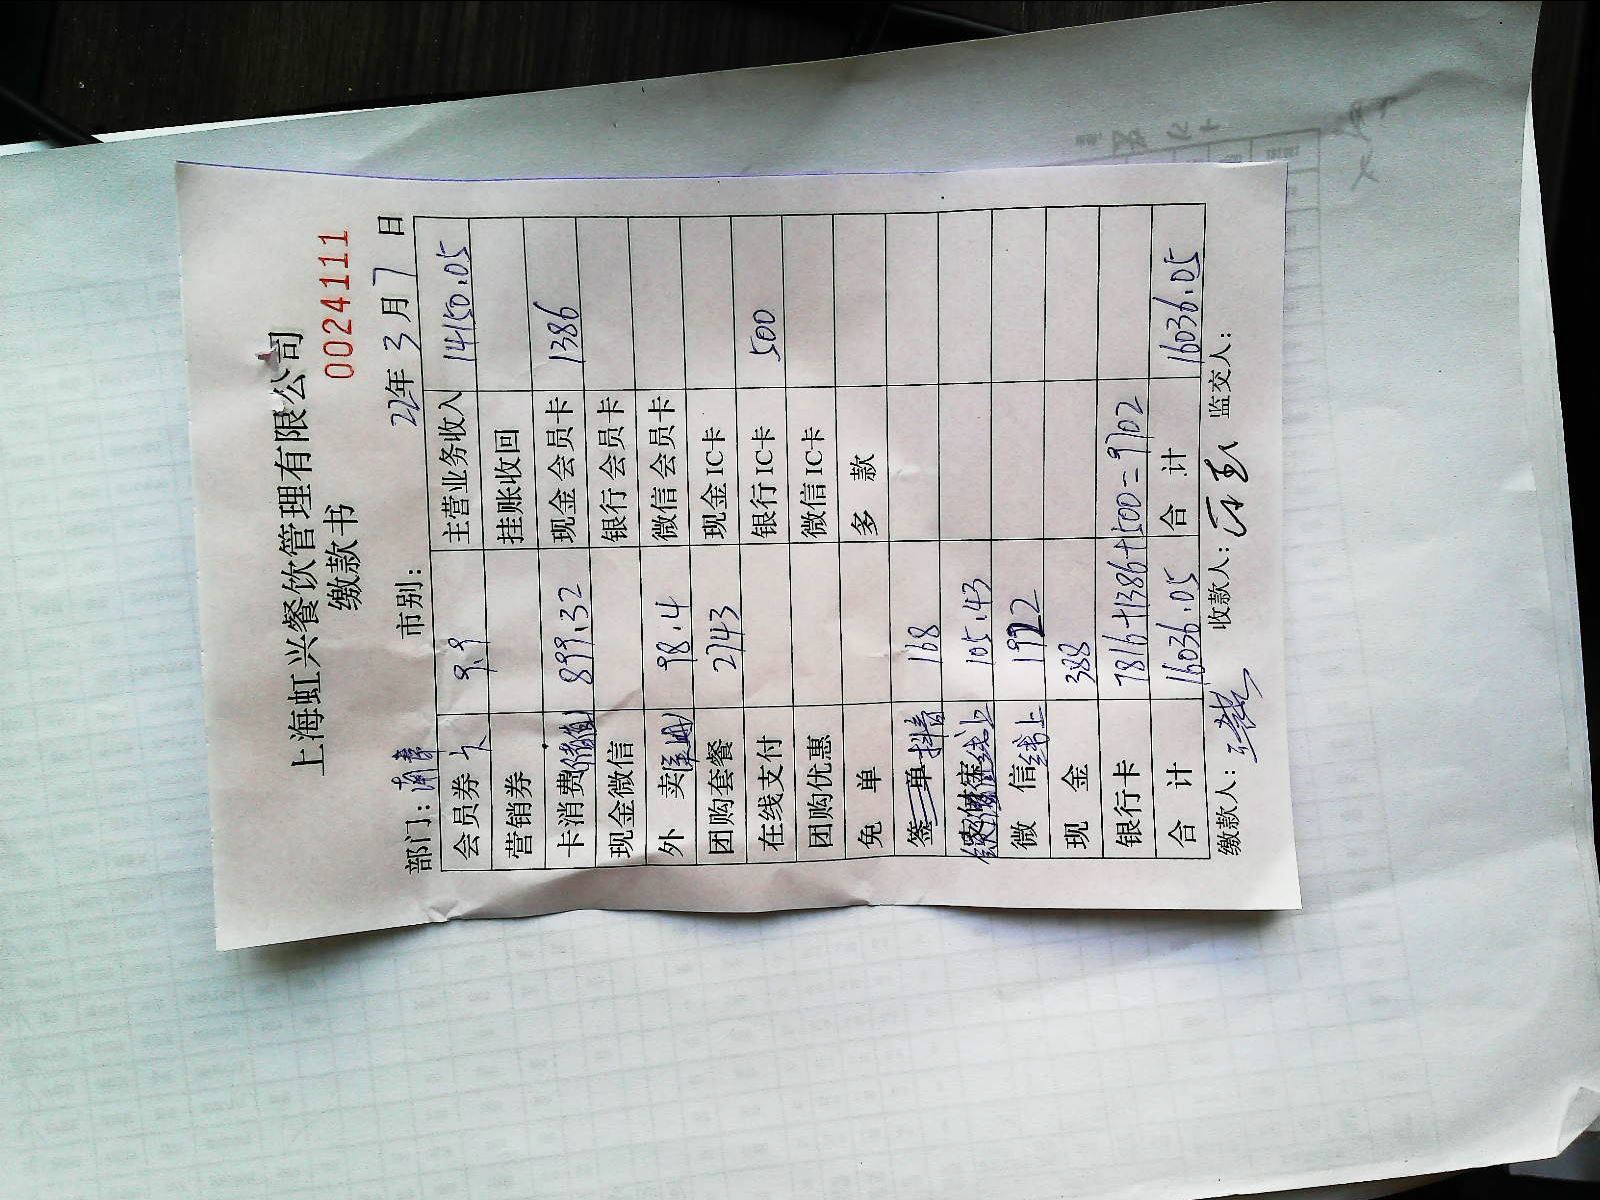 上海虹兴餐饮管理有限公司
缴款书 0024111
部门: 市别: 22年 3月 7日
会员券 9.9 主营业务收入 14150.05
营销券 挂账收回
卡消费 899.32 现金会员卡 1386
现金微信 银行会员卡
外 卖 98.4 微信会员卡
团购套餐 2743 现金IC卡
在线支付 银行IC卡 500
团购优惠 微信IC卡
免 单 多 款
签 单 抖音 168
线上 105.43
微 信 线上 1922
现 金 388
银行卡 7816+1386+500=9702
合 计 16036.05 合 计 16036.05
缴款人: 收款人: 监交人: